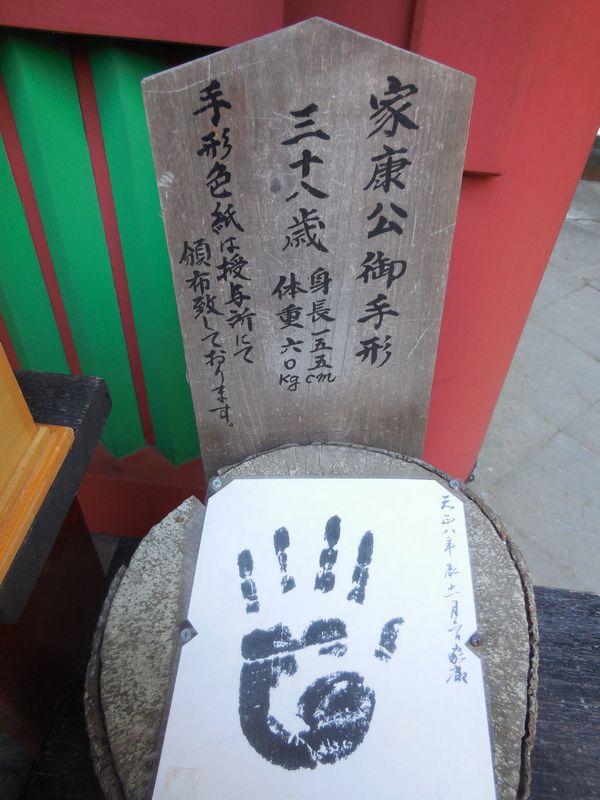 家康公御手形
三十八歳
身長一五五cm
体重六〇kg
手形色紙は授与所にて
頒布致しております。
天正八年辰十一月六日家康